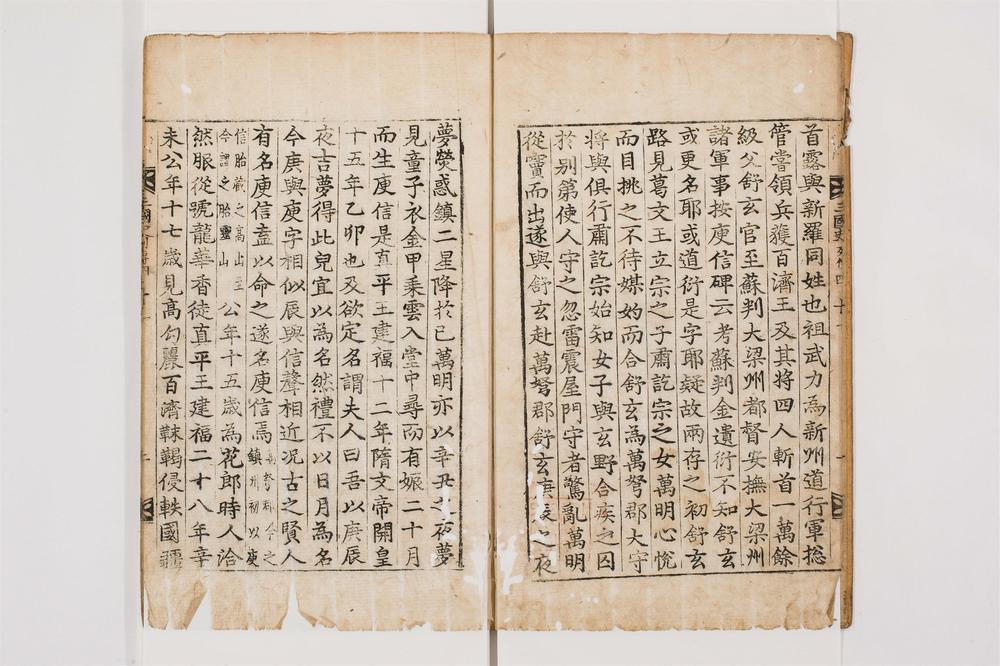 三國史列傳四
首露與新羅同姓也祖武力為新州道行軍揔
管嘗領兵獲百濟王及其將四人斬首一萬餘
級父舒玄官至蘇判大梁州都督安撫大梁州
諸軍事按庾信碑云考蘇判金遺衍不知舒玄
或更名耶或道衍是字耶疑故兩存之初舒玄
路見葛文王立宗之子肅訖宗之女萬明心悅
而目挑之不待媒妁而合舒玄為萬弩郡大守
將與俱行肅訖宗始知女子與玄野合疾之囚
於别第使人守之忽雷震屋門守者驚亂萬明
從竇而出遂與舒玄赴萬弩郡舒玄庚辰之夜
夢熒惑鎮二星降於己萬明亦以辛丑之夜夢
見童子衣金甲乘雲入堂中尋而有娠二十月
而生庾信是真平王建福十二年隋文帝開皇
十五年乙卯也及欲定名謂夫人曰吾以庚辰
夜吉夢得此兒宜以為名然禮不以日月為名
今庚與庾字相似辰與信聲相近況古之賢人
有名庾信盍以命之遂名庾信焉萬弩郡今之鎮州初以庾
信胎藏之高山至今謂之胎靈山公年十五歲為花郎時人洽
然服從號龍華香徒真平王建福二十八年辛
未公年十七歲見高勾麗百濟靺鞨侵軼國疆